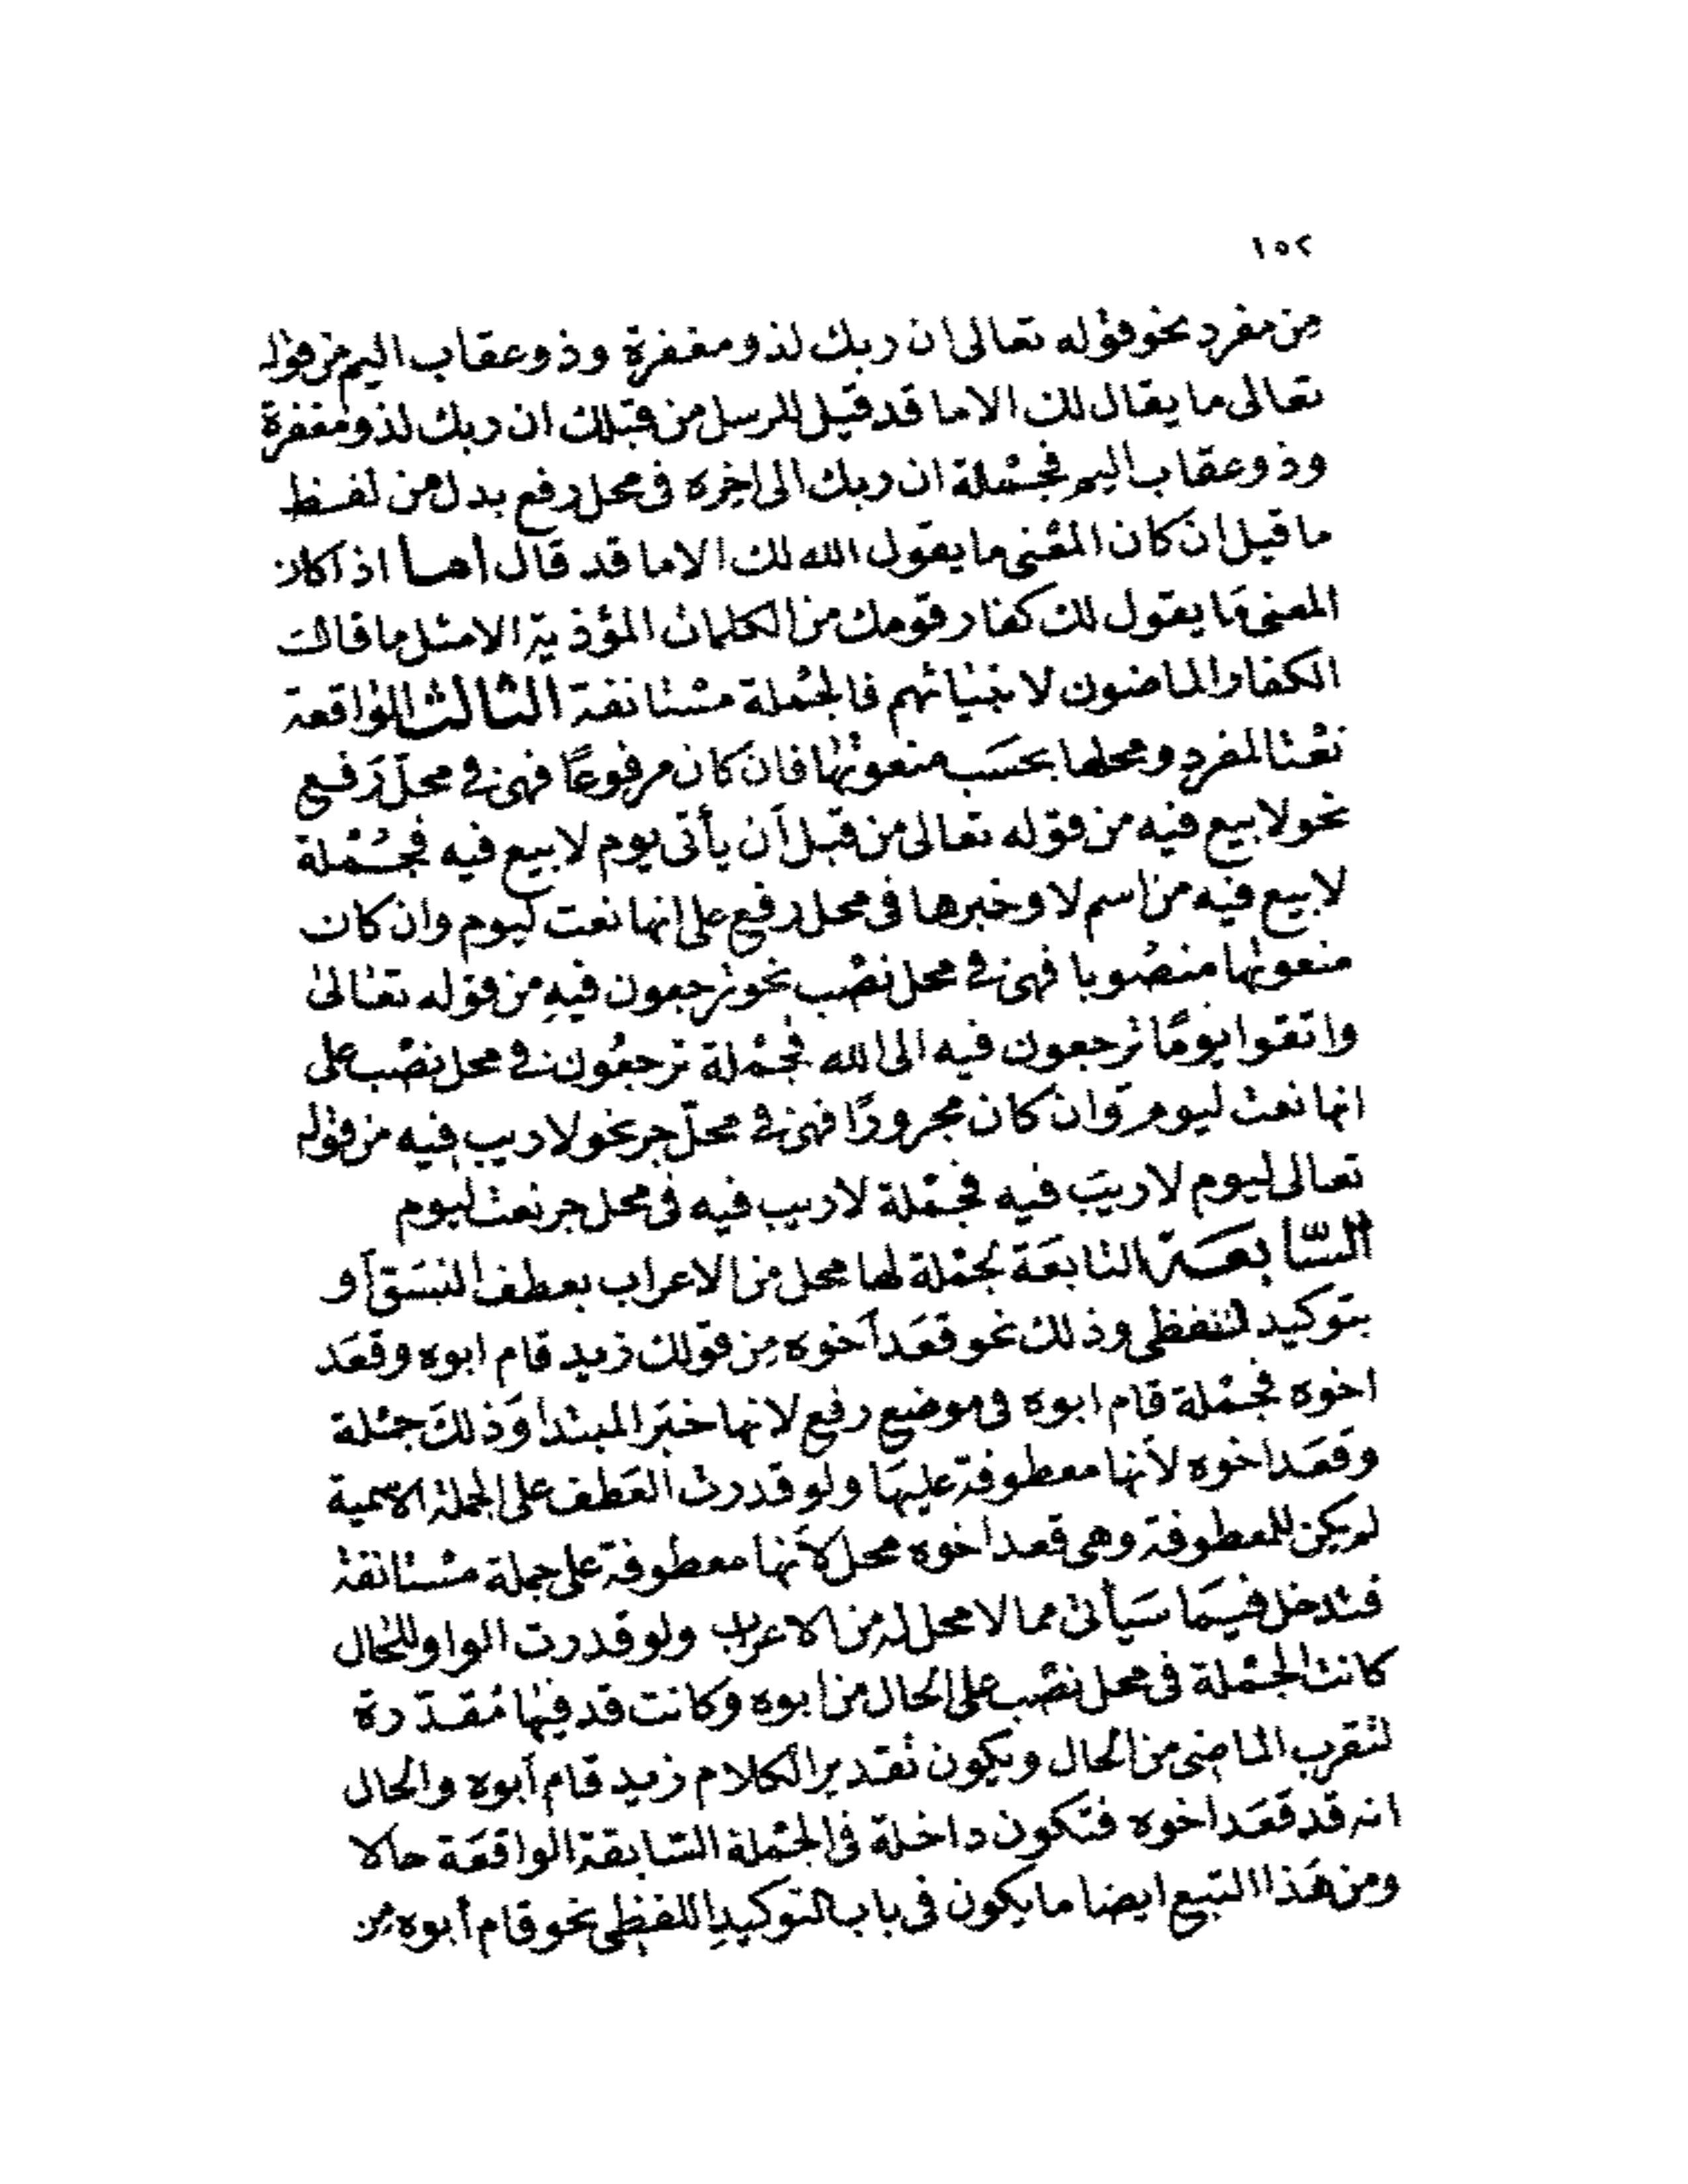 ١٥٢
من مفرد نحو قوله تعالى ان ربك لذو مغفرة وذو عقاب اليم من قوله
تعالى ما يقال لك الا ما قد قيل للرسل من قبلك ان ربك لذو مغفرة
وذو عقاب اليم فجملة ان ربك الى اخره فى محل رفع بدل من لفظ
ما قيل ان كان المعنى ما يقول الله لك الا ما قد قال أما اذا كان
المعنى مَا يقول لك كفار قومك من الكلمات المؤذية الا مثل ما قالت
الكفار الماضون لانبيائهم فالجملة مستانفة الثالث الواقعة
نعتا لمفرد ومحلها بحسَب منعوتها فان كان مرفوعًا فهى فى محلّ رَفع
نحو لا بيع فيه من قوله تعالى من قبل أن يأتى يوم لا بيع فيه فجُملة
لا بيع فيه من اسم لا وخبرها فى محل رفع على انها نعت ليوم وان كان
منعوتها منصُوبا فهى فى محل نصب نحو ترجعون فيهِ من قوله تعالى
واتقوا يومًا ترجعون فيه الى الله فجملة ترجعُون فى محل نصب على
انها نعت ليوم وَان كان مجرورًا فهى فى محلّ جر نحو لا ريب فيه من قوله
تعالى ليوم لا ريبَ فيه فجملة لا ريب فيه فى محل جر نعت ليوم
السّابعَة التابعَة لجملة لها محل من الاعراب بعطف النسَق أو
بتوكيد اللفظى وذلك نحو قعَد أخوه مِن قولك زيد قام ابوه وقعَد
اخوه فجملة قام ابوه فى موضع رفع لانها خبَر المبتدا وَذلكَ جملة
وقعَد اخوه لأنها معطوفة عليهَا ولو قدرت العَطف على الجملة الاسمية
لم يكن للمعطوفة وهى قعد اخوه محل لأنها معطوفة على جملة مستانفة
فتدخل فيمَا سَيأتى مما لا محل له من الاعراب ولو قدرت الواو للحال
كانت الجملة فى محل نصب على الحال من ابوه وكانت قد فيها مُقدّرة
لتقرب الماضى من الحال ويكون تقدير الكلام زيد قام أبوه والحال
انه قد قعَد اخوه فتكون داخلة فى الجملة السّابقة الواقعَة حالا
ومن هَذا التبع ايضا ما يكون فى باب التوكيدِ اللفظى نحو قام أبوه مِن